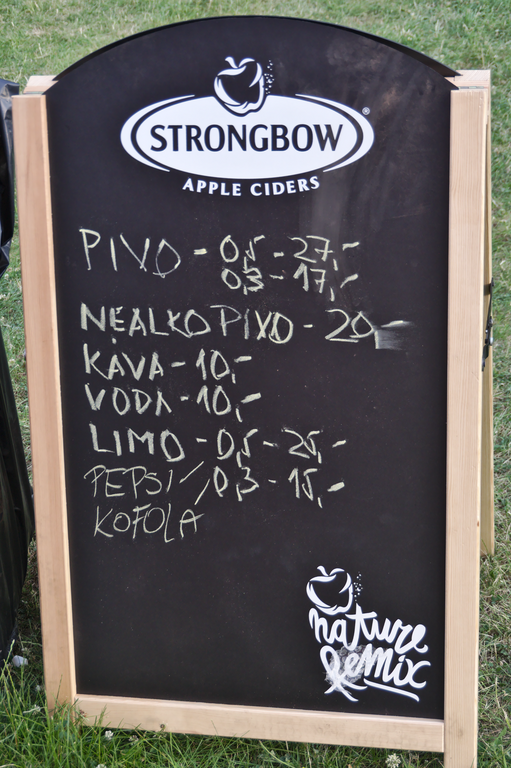 STRONGBOW®
APPLE CIDERS
PIVO - 0,5 - 27,-
0,3 - 17,-
NEALKO PIVO - 20,-
KÁVA - 10,-
VODA - 10,-
LIMO - 0,5 - 25,-
PEPSI / 0,3 - 15,-
KOFOLA
nature
Remix